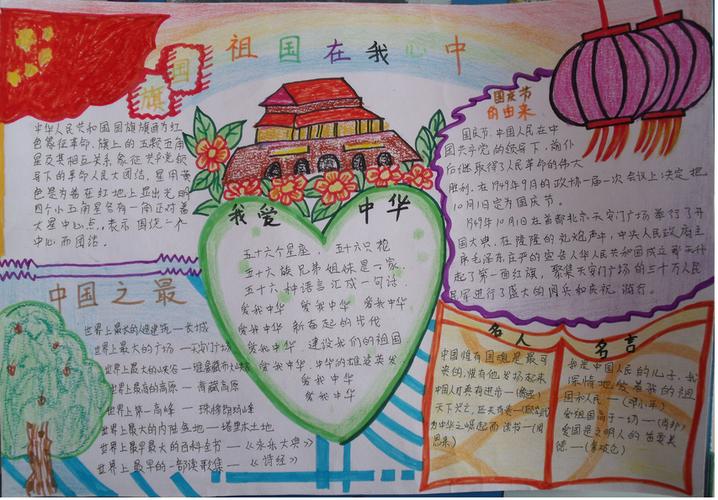 祖国在我心中
国旗
中华人民共和国国旗旗面为红
色象征革命.旗上的五颗五角
星及其相互关系象征共产党领
导下的革命人民大团结.星用黄
色是为着在红地上显出光明
四个小五角星各有一角正对着
大星中心点,表示围绕一个
中心而团结.
中国之最
世界上最大的人造建筑—长城
世界上最大的广场—天安门广场
世界上最高的高原—青藏高原
世界上第一高峰—珠穆朗玛峰
世界上最大的内陆盆地—塔里木盆地
世界上最早最大的百科全书—《永乐大典》
世界上最早的一部诗歌集—《诗经》
我爱 中华
五十六个星座,五十六只花
五十六族兄弟姐妹是一家
五十六种语言汇成一句话.
爱我中华 爱我中华 爱我中华
爱我中华 新奋起的步伐
爱我中华 建设我们的祖国
爱我中华.中华的雄姿英发
爱我中华 爱我中华
爱我中华
国庆节
的由来
国庆节,中国人民在中
国共产党的领导下,前仆
后继取得了人民革命的伟大
胜利.在1949年9月的政协一届一次会议上决定把
10月1日定为国庆节.
1949年10月1日在首都北京天安门广场举行了开
国大典.在隆隆的礼炮声中,中央人民政府主
席毛泽东庄严的宣告中华人民共和国成立并升
起了第一面红旗,聚集天安门广场的三十万人民
军进行了盛大的阅兵和庆祝游行.
名人 名言
中国惟有国魂是最可
贵的,惟有他发扬起来
中国人才真有进步—(鲁迅)
天下兴亡,匹夫有责—(顾炎武)
为中华之崛起而读书—(周
恩来)
我是中国人民的儿子,我
深情地爱着我的祖
国和人民—(邓小平)
爱祖国高于一切—(肖邦)
爱国是文明人的首要美
德—(拿破仑)